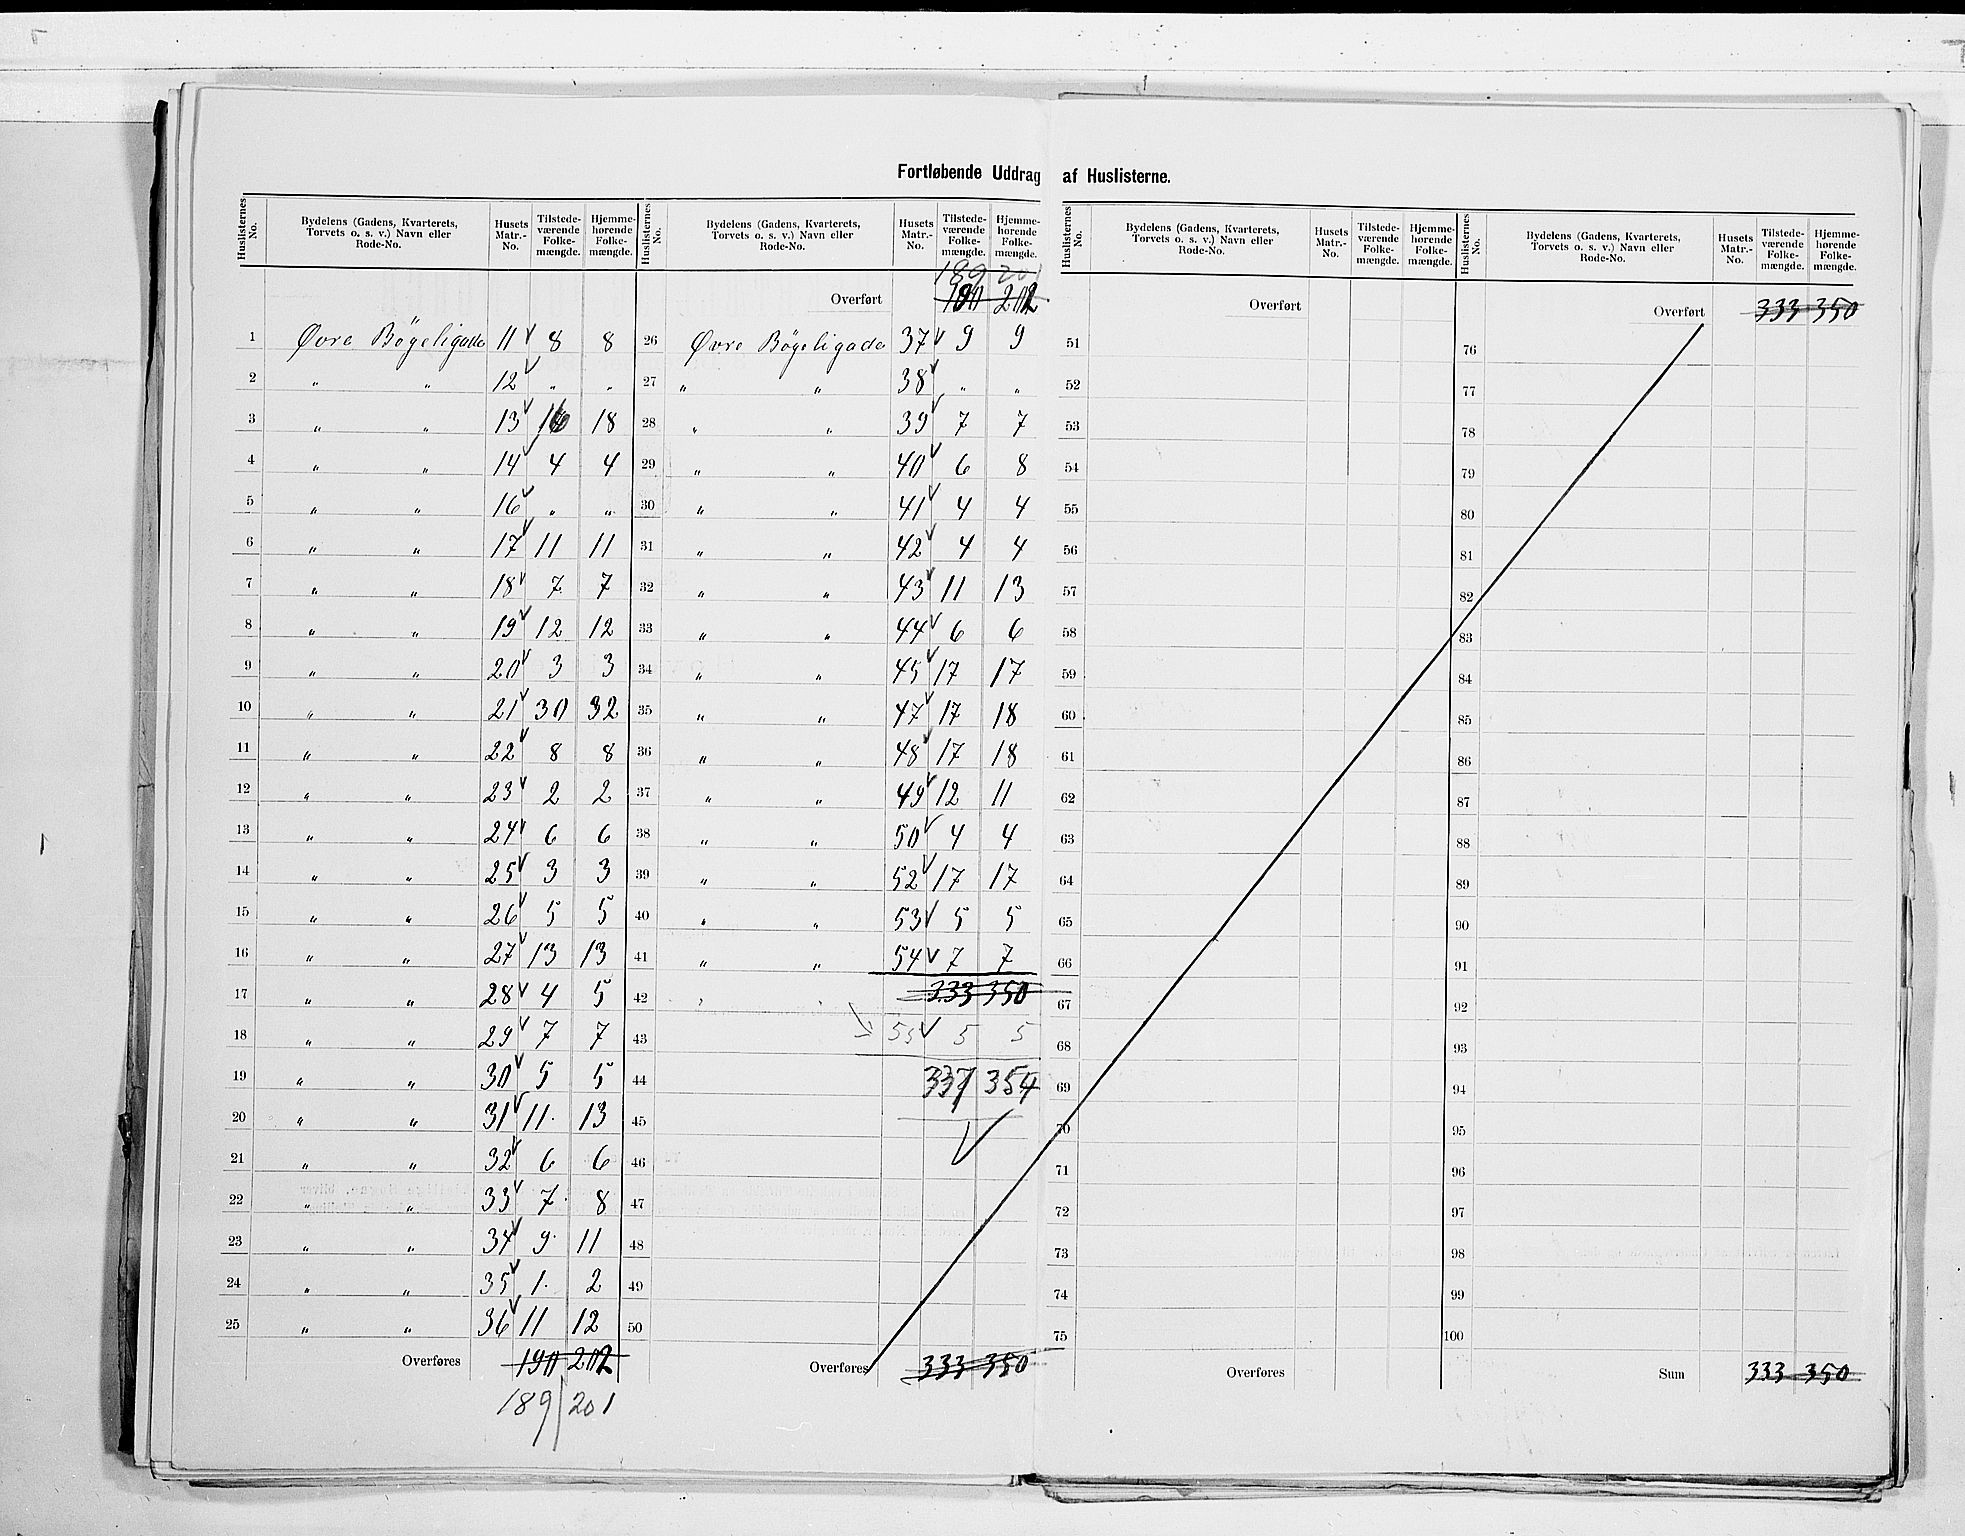 Fortløbende Uddrag af Huslisterne.
Huslisternes No. | Bydelens (Gadens, Kvarterets, Torvets o. s. v.) Navn eller Rode-No. | Husets Matr.-No. | Tilstede-værende Folke-mængde. | Hjemme-hørende Folke-mængde.
1 Øvre Bögeligade 11 √ 8 8
2 " " 12 √ " "
3 " " 13 √ 16 18
4 " " 14 √ 4 4
5 " " 16 √ " "
6 " " 17 √ 11 11
7 " " 18 √ 7 7
8 " " 19 √ 12 12
9 " " 20 √ 3 3
10 " " 21 √ 30 32
11 " " 22 √ 8 8
12 " " 23 √ 2 2
13 " " 24 √ 6 6
14 " " 25 √ 3 3
15 " " 26 √ 5 5
16 " " 27 √ 13 13
17 " " 28 √ 4 5
18 " " 29 √ 7 7
19 " " 30 √ 5 5
20 " " 31 √ 11 13
21 " " 32 √ 6 6
22 " " 33 √ 7 8
23 " " 34 √ 9 11
24 " " 35 √ 1 2
25 " " 36 √ 11 12
Overføres 190 202
189 201
Huslisternes No. | Bydelens (Gadens, Kvarterets, Torvets o. s. v.) Navn eller Rode-No. | Husets Matr.-No. | Tilstede-værende Folke-mængde. | Hjemme-hørende Folke-mængde.
189 201
Overført 190 202
26 Øvre Bögeligade 37 √ 9 9
27 " " 38 √ " "
28 " " 39 √ 7 7
29 " " 40 √ 6 8
30 " " 41 √ 4 4
31 " " 42 √ 4 4
32 " " 43 √ 11 13
33 " " 44 √ 6 6
34 " " 45 √ 17 17
35 " " 47 √ 17 18
36 " " 48 √ 17 18
37 " " 49 √ 12 11
38 " " 50 √ 4 4
39 " " 52 √ 17 17
40 " " 53 √ 5 5
41 " " 54 √ 7 7
42 333 350
43 55 √ 5 5
44 337 354
45 √
46
47
48
49
50
Overføres 333 350
Huslisternes No. | Bydelens (Gadens, Kvarterets, Torvets o. s. v.) Navn eller Rode-No. | Husets Matr.-No. | Tilstede-værende Folke-mængde. | Hjemme-hørende Folke-mængde.
Overført
51
52
53
54
55
56
57
58
59
60
61
62
63
64
65
66
67
68
69
70
71
72
73
74
75
Overføres
Huslisternes No. | Bydelens (Gadens, Kvarterets, Torvets o. s. v.) Navn eller Rode-No. | Husets Matr.-No. | Tilstede-værende Folke-mængde. | Hjemme-hørende Folke-mængde.
Overført 333 350
76
77
78
79
80
81
82
83
84
85
86
87
88
89
90
91
92
93
94
95
96
97
98
99
100
Sum 333 350